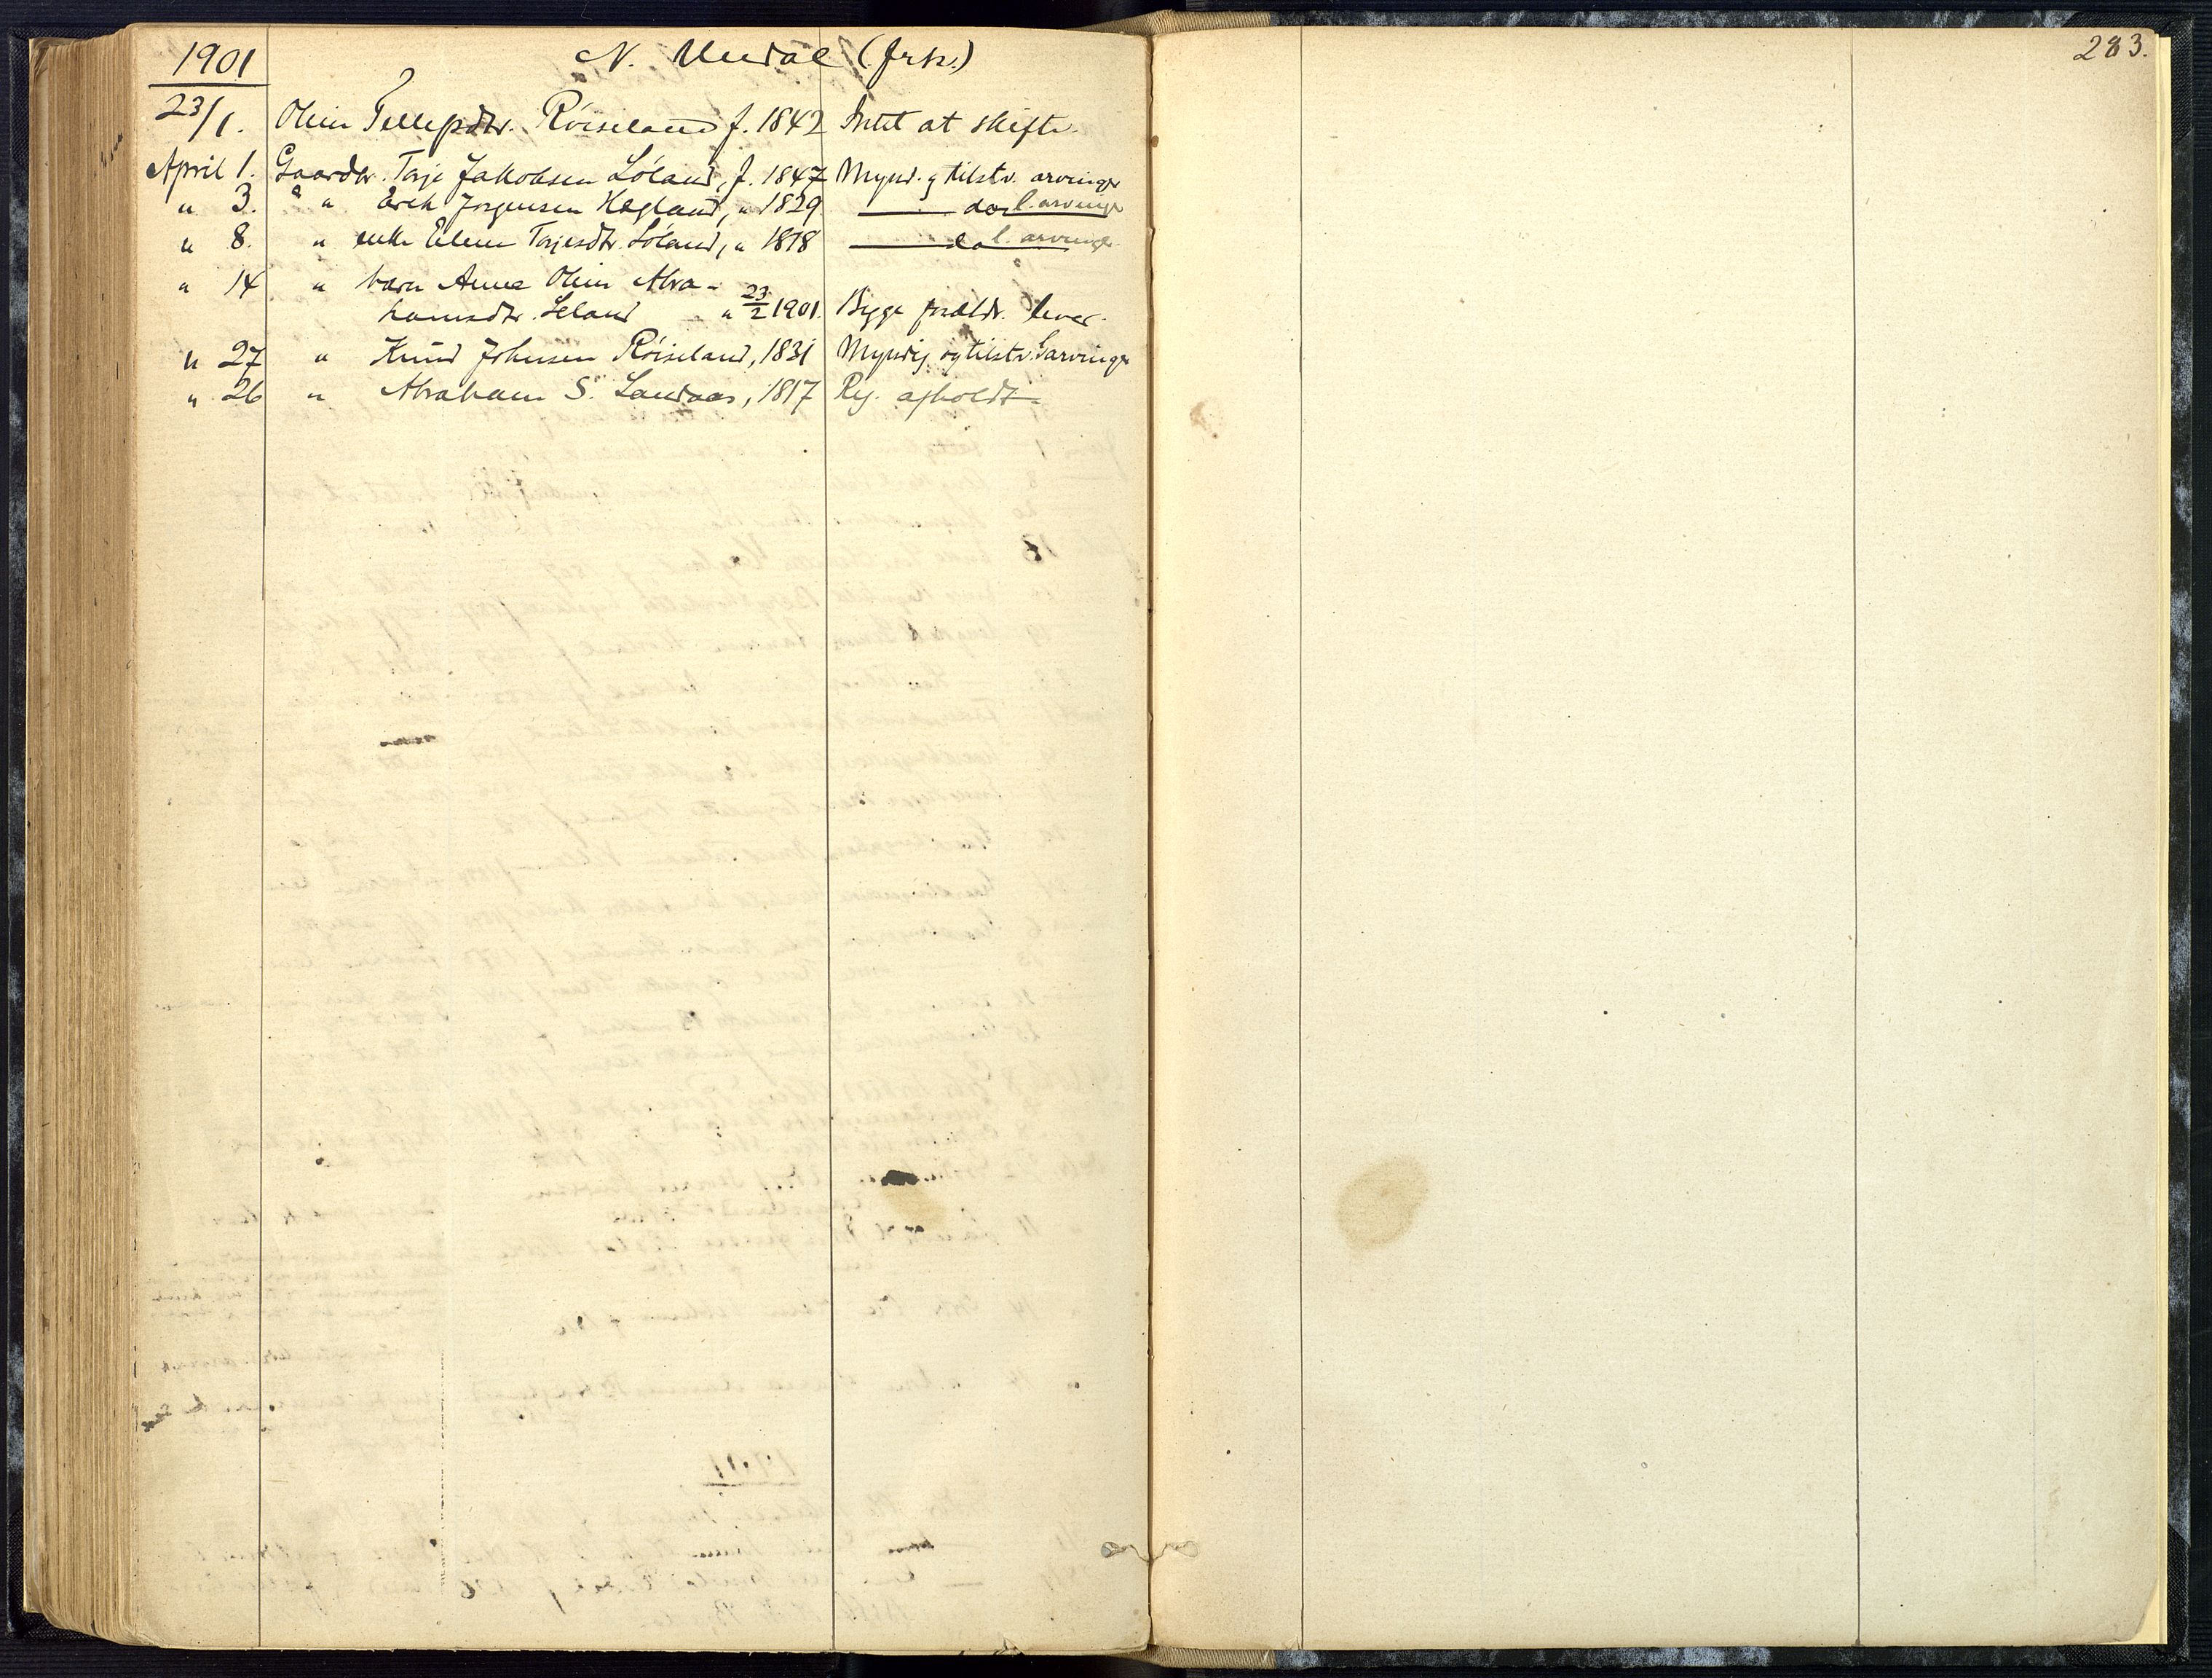 283.
1901 N. Undal (frk.)
23/1. Oline Tellefsdtr. Røiseland f. 1842 Intet at skifte.
April 1. Gaardbr. Terje Jakobsen Løland, f. 1847 Mynd. og tilstv. arvinger
" 3. " " Erik Jørgensen Høgland, " 1829 do l. arvinger
" 8. " enke Elene Terjesdtr. Løland, " 1818 do l. arvinger
" 14 " barn Anne Oline Abra-
hamsdtr. Leland " 23/2 1901. Begge forældr. lever.
" 27 " Knud Johnsen Røiseland, 1831 Myndig og tilstv. l. arvinger
" 26 " Abraham S. Landaas, 1817 Reg. afholdt